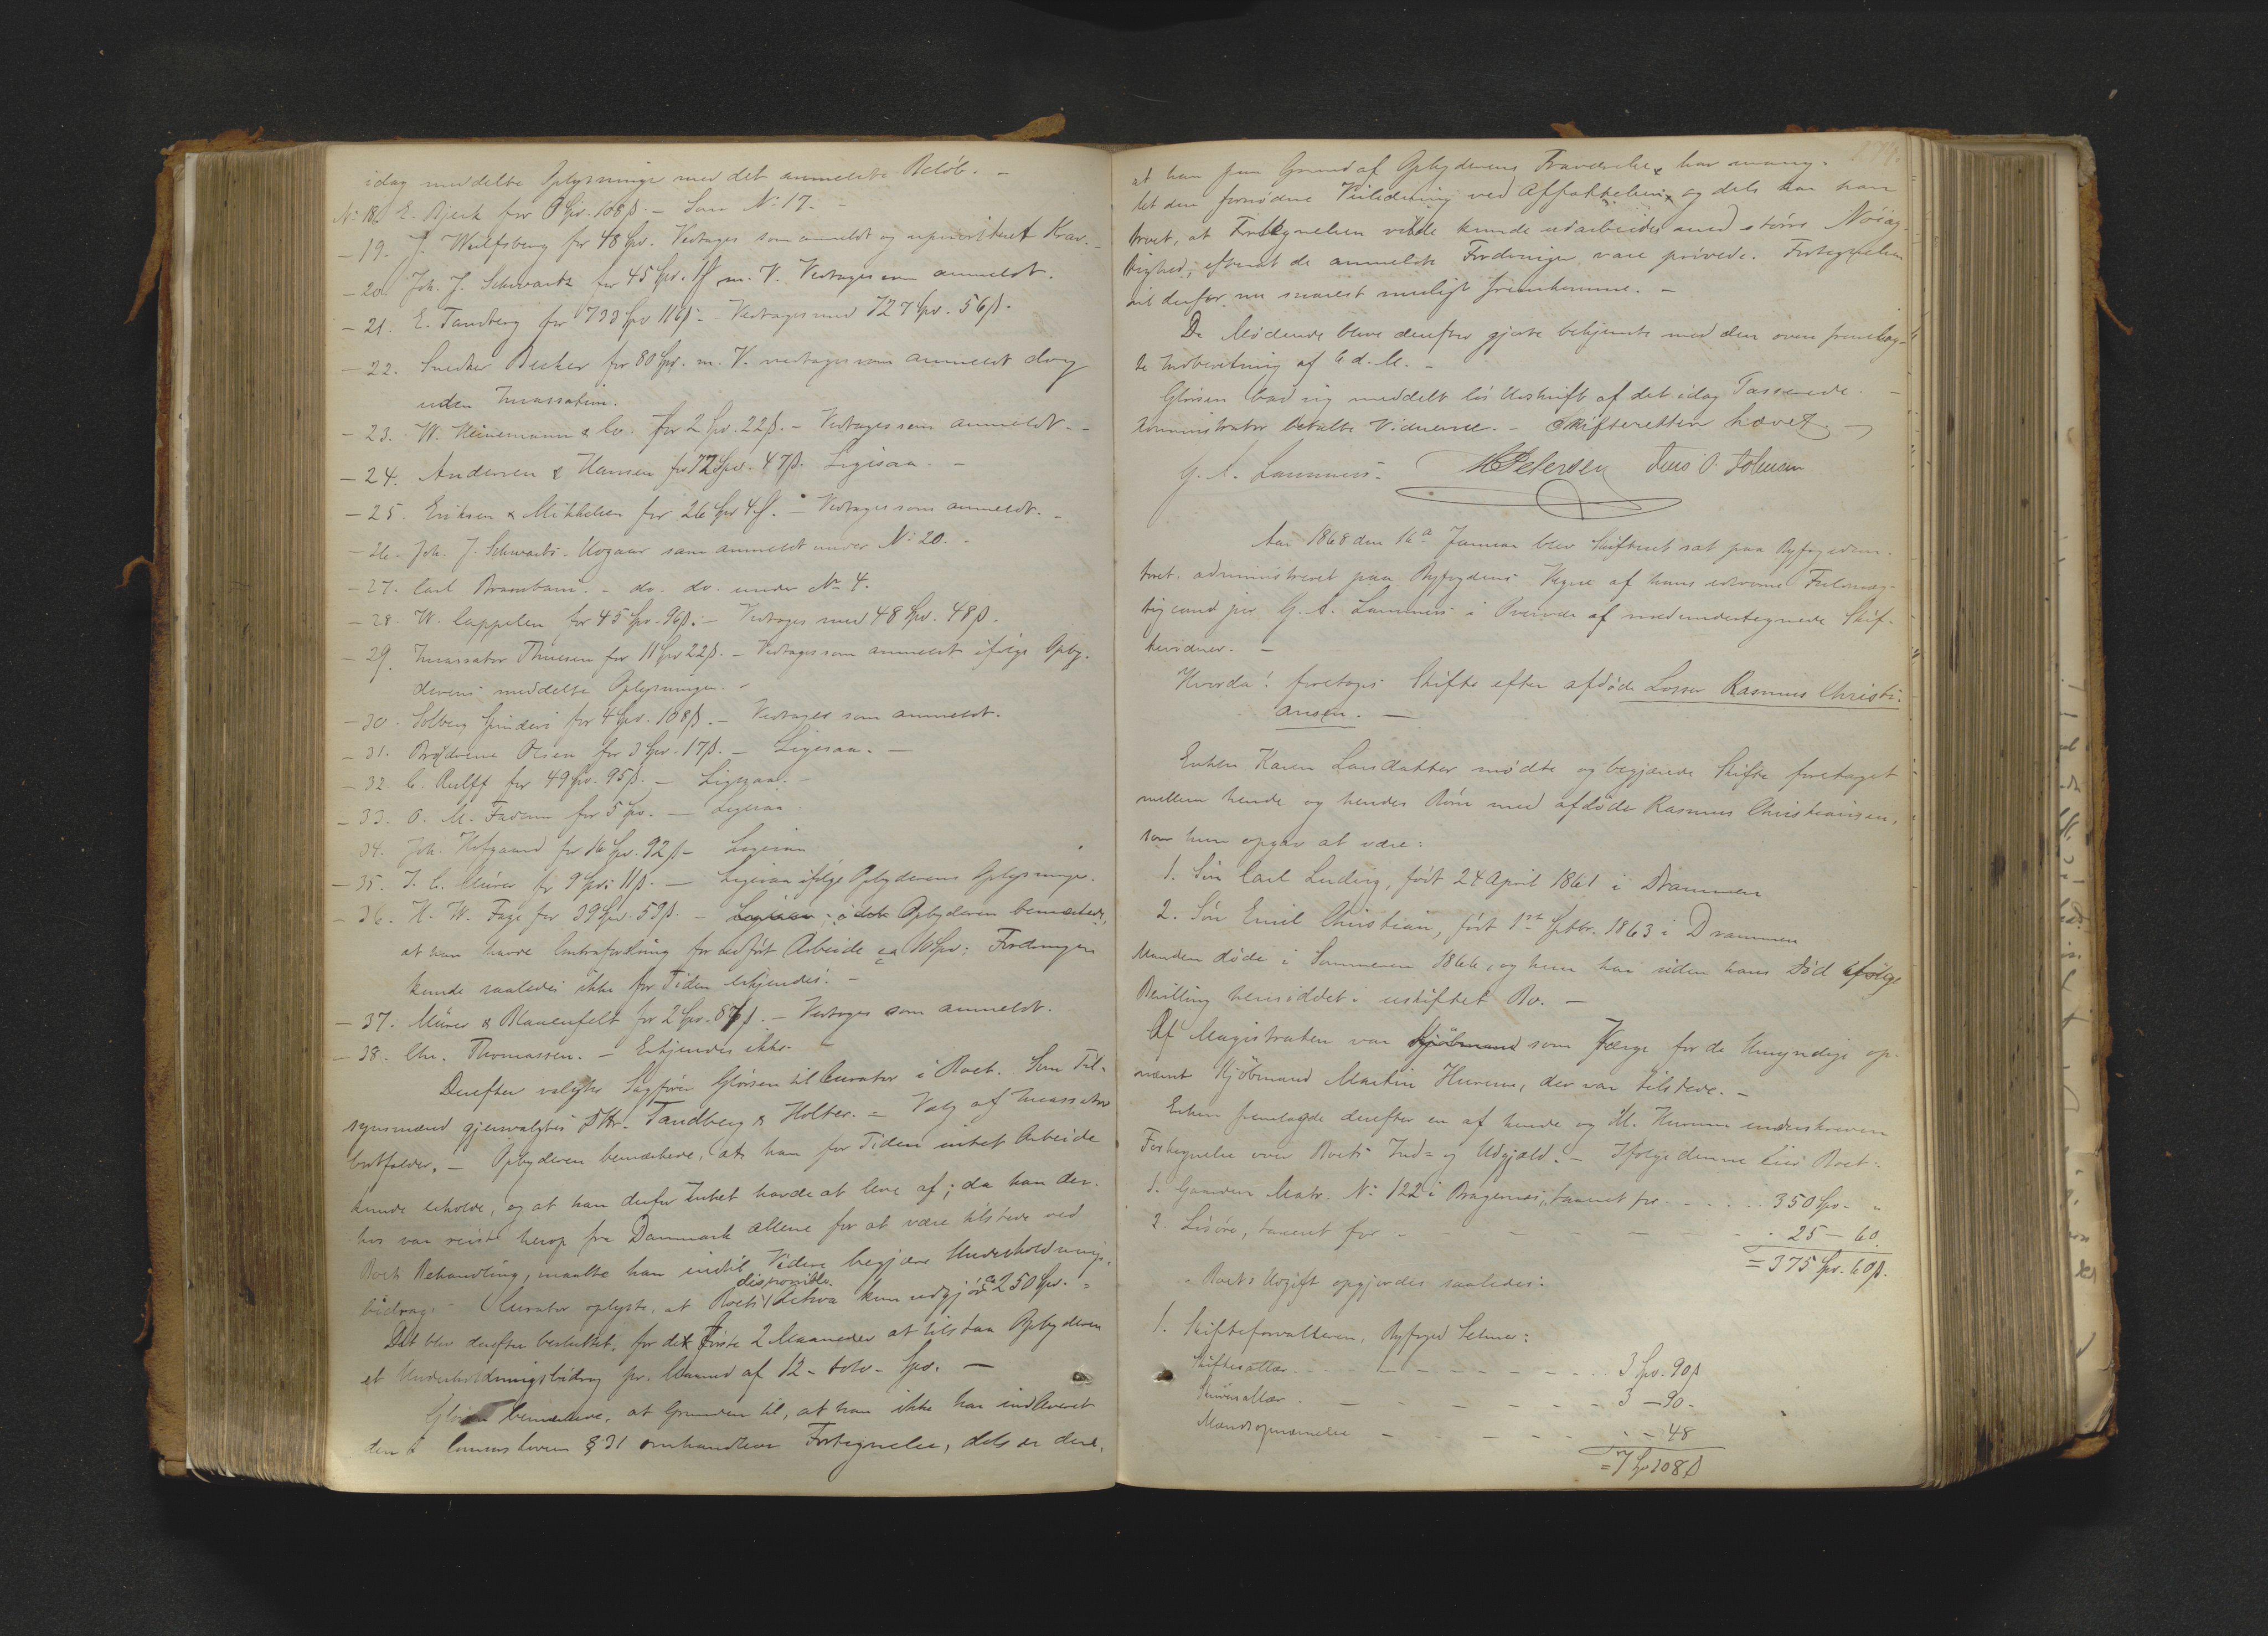 idag meddelte Oplysninger med det anmeldte Beløb. -
No 18. E. Bjerk for 0 Spd. 108 β. - Som No 17. -
- 19. J. Wulfsberg for 48 Spd. Vedtages som anmeldt og uprioriteret Krav. -
- 20. Joh. J. Schwartz for 45 Spd. 1 β m. V. Vedtages som anmeldt.
- 21. E. Tandberg for 733 Spd 11 β. - Vedtages med 727 Spd. 56 β.
- 22. Snedker Becker for 80 Spd. m. V. vedtages som anmeldt dog
uden Incassation.
- 23. W. Heinemann & Co. for 2 Spd. 22 β. - Vedtages som anmeldt. -
- 24. Andersen & Hansen for 72 Spd. 47 β. Ligesaa. -
- 25. Eriksen & Mikkelsen for 26 Spd 4 β. - Vedtages som anmeldt. -
- 26. Joh. J. Schwartz. Udgaar som anmeldt under No 20. -
- 27. Carl Brambani. - do. do. under No 4.
- 28. W. Cappelen for 45 Spd. 96 β. - Vedtages med 48 Spd. 48 β.
- 29. Incassator Thuesen for 11 Spd 22 β. - Vedtages som anmeldt ifølge Opby-
derens meddelte Oplysninger. -
- 30. Solberg Spinderi for 4 Spd. 108 β. - Vedtages som anmeldt.
- 31. Brødrene Olsen for 3 Spd. 17 β. - Ligesaa. -
- 32. C. Rulff for 49 Spd. 95 β. - Ligesaa. -
- 33. O. M. for 5 Spd. - Ligesaa
34. Joh. Hofgaard for 16 Spd. 92 β - Ligesaa
- 35. J. C. Mürer for 9 Spd. 11 β. - Ligesaa ifølge Opbyderens Oplysninger.
- 36. H. W. Fage for 39 Spd. 59 β. - Ligesaa Opbyderen bemærkede,
at han havde Contrafordring for udført Arbeide ca 10 Spd; Fordringen
kunde saaledes ikke for Tiden erkjendes. -
- 37. Mürer & Blauenfelt for 2 Spd. 87 β. - Vedtages som anmeldt.
- 38. Chr. Thomassen. - Erkjendes ikke. -
Derefter valgtes Sagfører Glørsen til Curator i Boet. Som Til-
synsmænd gjenvalgtes DHr. Tandberg & Holter. - Valg af Incassator
bortfalder. - Opbyderen bemærkede, at han for Tiden intet Arbeide
kunde erholde, og at han derfor Intet havde at leve af; da han der-
hos var reist herop fra Danmark allene for at være tilstede ved
Boets Behandling, maatte han indtil Videre begjære Underholdnings-
bidrag. - Curator oplyste, at Boets disponible Activa kun udgjør ca 250 Spd. -
Det blev derefter besluttet, for de første 2 Maaneder at tilstaa Opbyderen
et Underholdningsbidrag pr. Maaned af 12 - tolv - Spd. -
Glørsen bemærkede, at Grunden til, at han ikke har indleveret
den i Concursloven § 31 omhandlede Fortegnelse, dels er den,
at han paa Grund af Opbyderens Fraværelse har mang-
let den fornødne Veiledning ved Affattelsen, og dels har han
troet, at Fortegnelsen vilde kunde udarbeides med større Nøiag-
tighed, efterat de anmeldte Fordringer vare prøvede. Fortegnelsen
vil derfor nu snarest muligt fremkomme. -
De Mødende bleve derefter gjorte bekjendte med den oven fremlag-
te Indberetning af 6 d. M. -
Glørsen bad sig meddelt løs Udskrift af det idag Passerede. -
Administrator betalte Vidnerne. - Skifteretten hævet. -
G. A. Lammers. MPetersen Jens O. Johnsen
Aar 1868 den 16de Januar blev Skifteret sat paa Byfogedcon-
toret, administreret paa Byfogdens Vegne af hans edsvorne Fuldmæg-
tig cand jur G. A. Lammers i Overvær af medundertegnede Skif-
tevidner. -
Hvorda: foretoges Skifte efter afdøde Losser Rasmus Christi-
ansen. -
Enken Karen Larsdatter mødte og begjærede Skifte foretaget
mellem hende og hendes Børn med afdøde Rasmus Christiansen,
som hun opgav at være:
1. Søn Carl Ludvig, født 24 April 1861 i Drammen
2. Søn Emil Christian, født 1ste Septbr. 1863 i Drammen
Manden døde i Sommeren 1866, og hun har siden hans Død ifølge
Bevilling hensiddet i uskiftet Bo. -
Af Magistraten var Kjøbmand som Værge for de Umyndige op-
nævnt Kjøbmand Martin Hurum, der var tilstede. -
Enken fremlagde derefter en af hende og M. Hurum underskreven
Fortegnelse over Boets Ind- og Udgjæld. - Ifølge denne eier Boet:
1. Gaarden Matr. No 122 i Bragernes, taxeret for - - - - - 350 Spd - "
2. Løsøre, taxeret for - - - - - - - 25 - 60
= 375 Spd. 60 β.
Boets Udgift opgjordes saaledes:
1. Skifteforvalteren, Byfoged Selmer:
Skiftesallær - - - - - - - - 3 Spd. 90 β
Skriversallær - - - - - - - 3 - 90 -
Mændsopnævnelse - - - - - - - 48
= 7 Spd 108 β